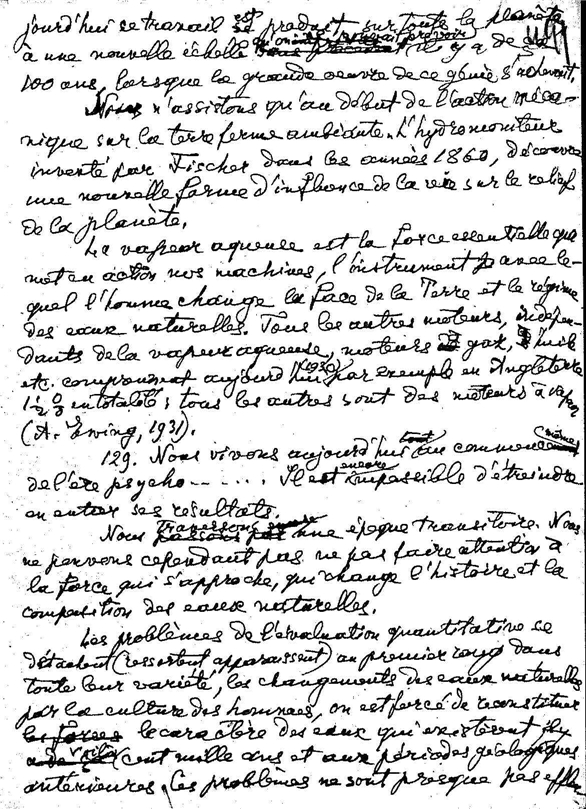 jourd'hui se travail est produit sur toute la planète
à une nouvelle échelle on ne pouvait prévoir il y a de ça
100 ans, lorsque la grande oeuvre de ce génie s'achevait.
Nous n'assistons qu'au début de l'action méca-
nique sur la terre ferme ambiante. L'hydromoniteur
inventé par Fischer dans les années 1860, découvre
une nouvelle forme d'influence de la vie sur le relief
de la planète.
La vapeur aqueuse est la force essentielle qui
met en action nos machines, l'instrument avec le-
quel l'homme change la face de la Terre et le régime
des eaux naturelles. Tous les autres moteurs, indépen-
dants de la vapeur aqueuse, moteurs à gaz, à huile
etc. comprennent aujourd'hui (1930) par exemple en Angleterre
1½ % en totalité; tous les autres sont des moteurs à vapeur
(A. Ewing, 1931).
129. Nous vivons aujourd'hui tout au commencement (même)
de l'ère psycho------. Il est encore impossible d'étreindre
en entier ses résultats.
Nous traversons une époque transitoire. Nous
ne pouvons cependant pas ne pas faire attention à
la force qui s'approche, qui change l'histoire et la
composition des eaux naturelles.
Les problèmes de l'évaluation quantitative se
détachent (ressortent, apparaissent) au premier rang dans
toute leur variété, les changements des eaux naturelles
par la culture des hommes, on est forcé de reconstituer
le caractère des eaux qui existèrent il y
a voilà (cent mille ans et aux périodes géologiques
antérieures. Ces problèmes ne sont presque pas